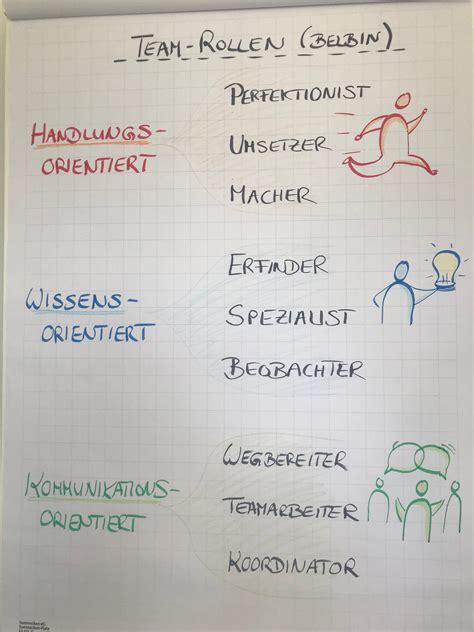 TEAM-ROLLEN (BELBIN)
PERFEKTIONIST
HANDLUNGS-
ORIENTIERT
UMSETZER
MACHER
ERFINDER
WISSENS-
ORIENTIERT
SPEZIALIST
BEOBACHTER
WEGBEREITER
KOMMUNIKATIONS-
ORIENTIERT
TEAMARBEITER
KOORDINATOR